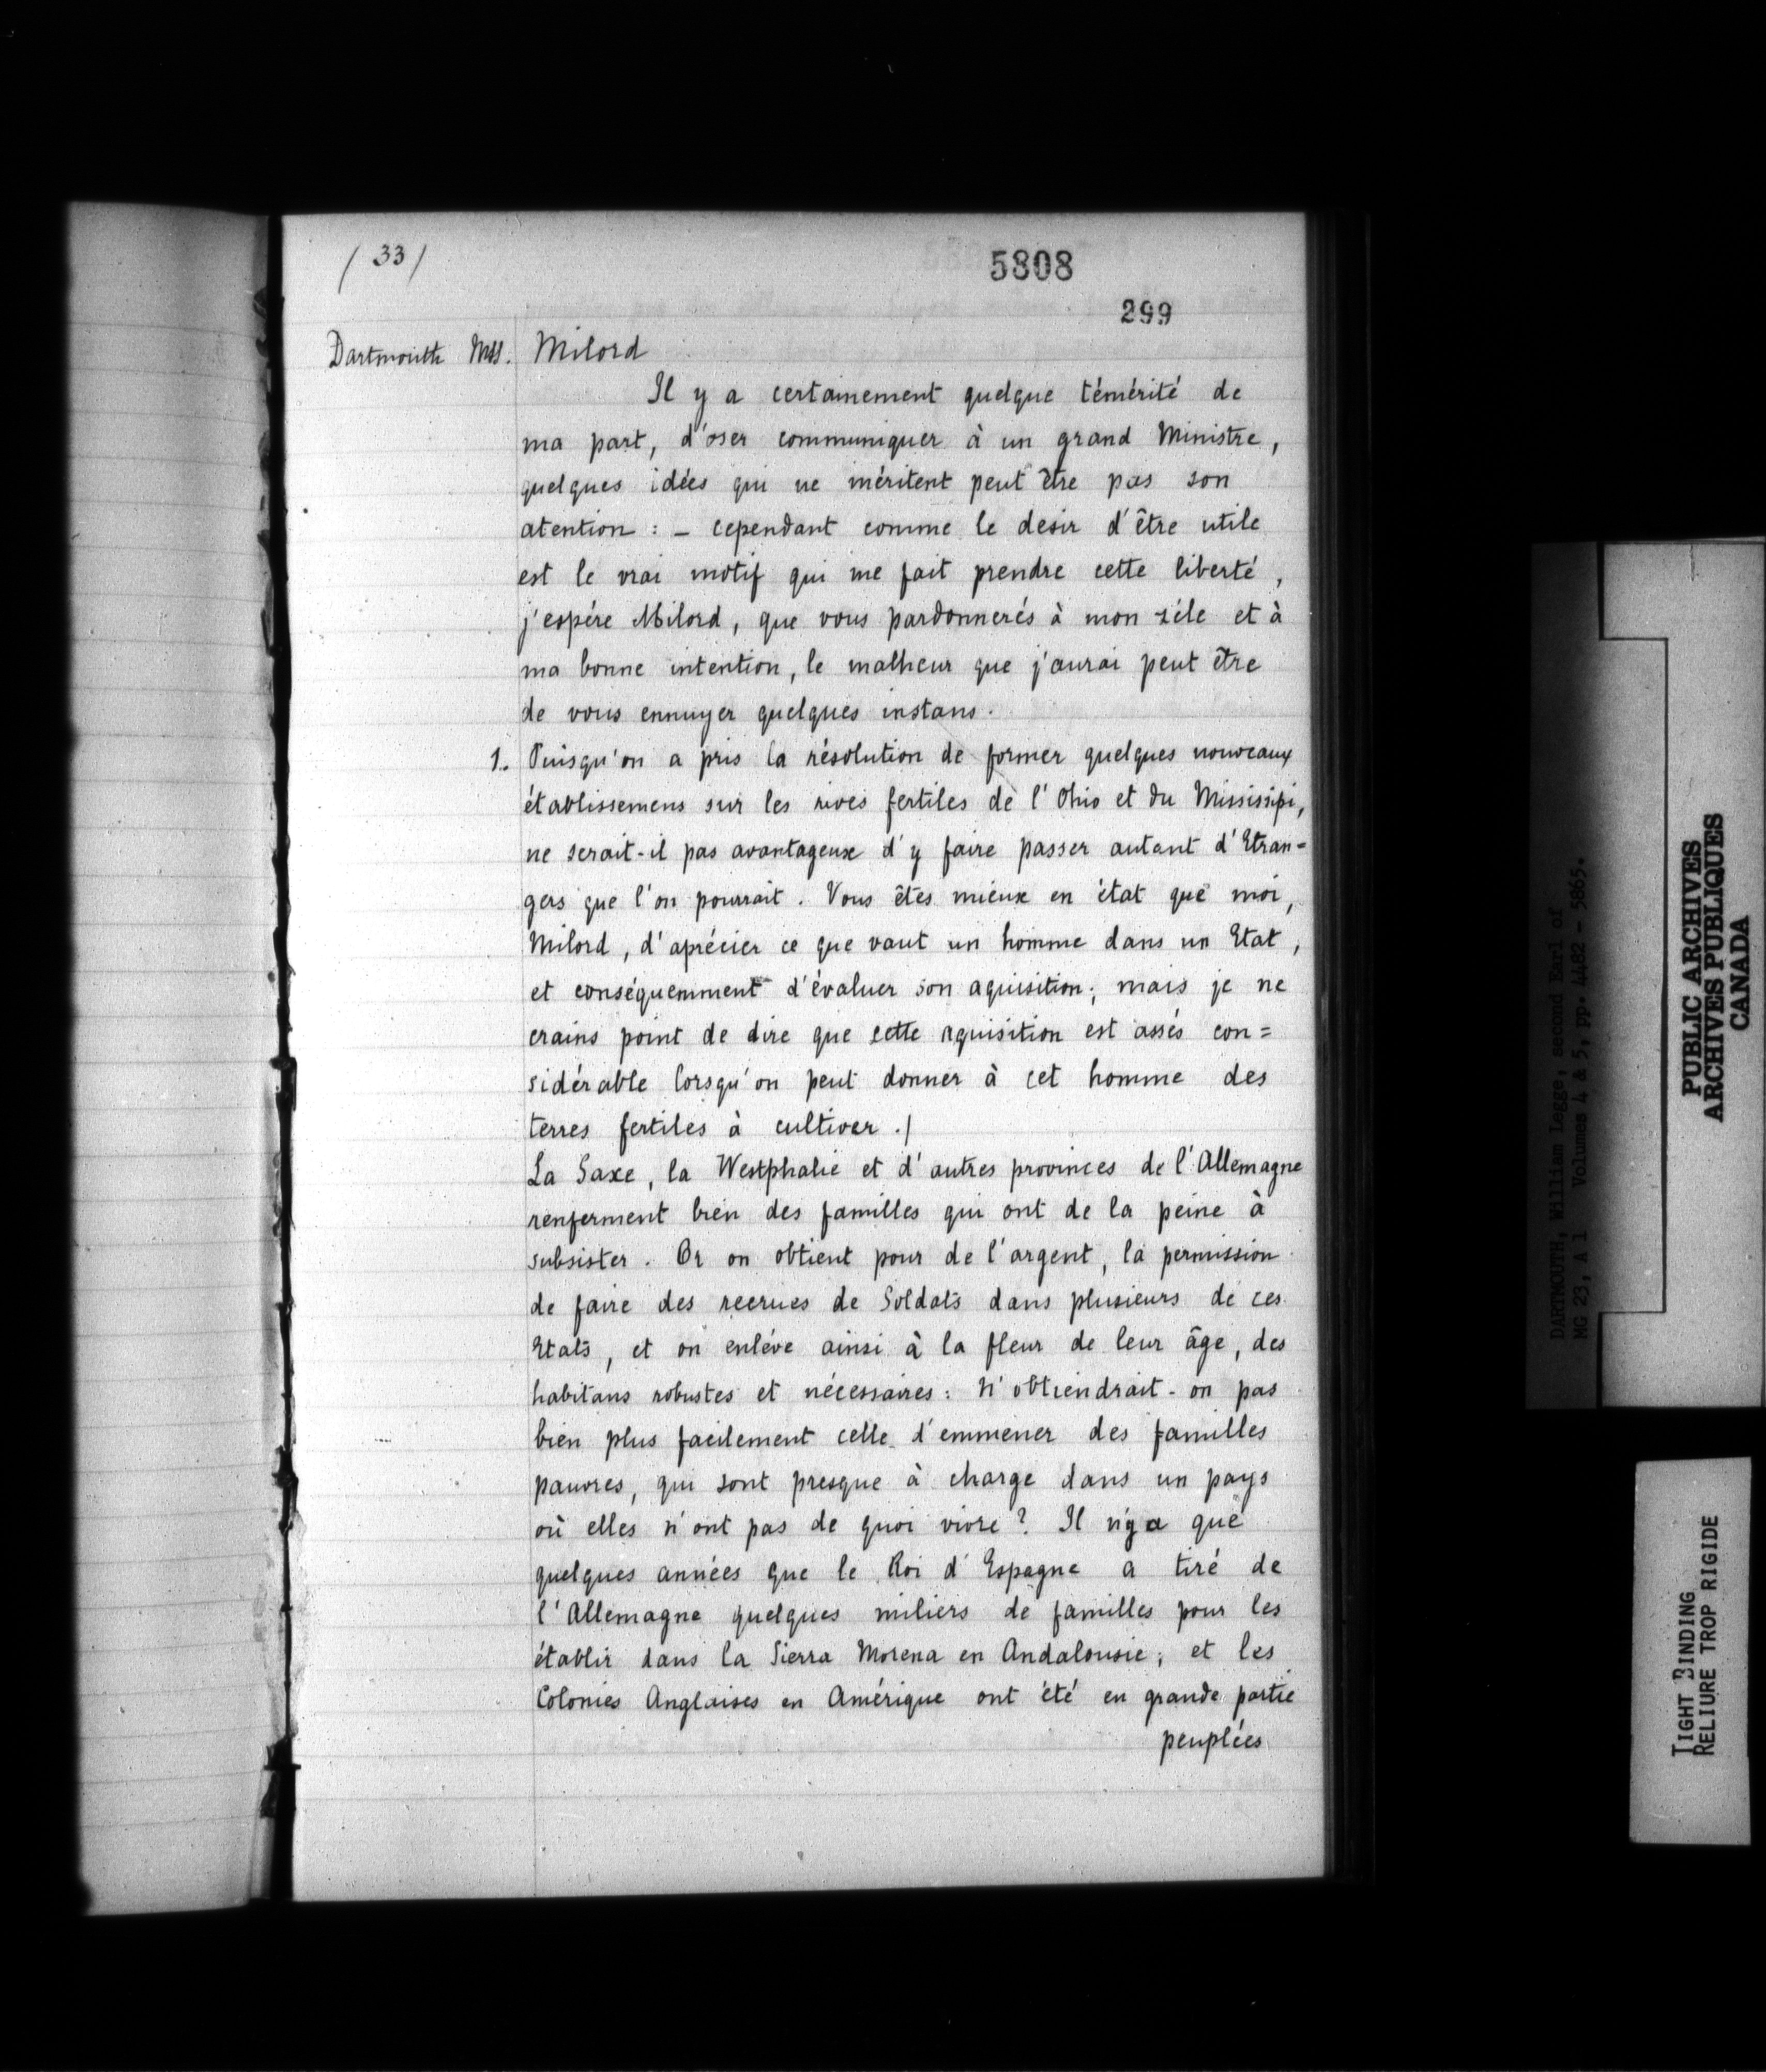 / 33 /
5808
299
Dartmouth Mss. Milord
Il y a certainement quelque témérité de
ma part, d'oser communiquer à un grand Ministre,
quelques idées qui ne méritent peut être pas son
atention : – cependant comme le desir d'être utile
est le vrai motif qui me fait prendre cette liberté,
j'espére Milord, que vous pardonnerés à mon zéle et à
ma bonne intention, le malheur que j'aurai peut être
de vous ennuyer quelques instans.
1. Puisqu'on a pris la résolution de former quelques nouveaux
établissemens sur les rives fertiles de l'Ohio et du Mississipi,
ne serait-il pas avantageux d'y faire passer autant d'Etran=
gers que l'on pourrait. Vous êtes mieux en état que moi,
Milord, d'aprécier ce que vaut un homme dans un Etat,
et conséquemment d'évaluer son aquisition; mais je ne
crains point de dire que cette aquisition est assés con=
sidérable lorsqu'on peut donner à cet homme des
terres fertiles à cultiver ./
La Saxe, la Westphalie et d'autres provinces de l'Allemagne
renferment bien des familles qui ont de la peine à
subsister. Or on obtient pour de l'argent, la permission
de faire des recrues de Soldats dans plusieurs de ces
Etats, et on enléve ainsi à la fleur de leur âge, des
habitans robustes et nécessaires: N'obtiendrait-on pas
bien plus facilement celle d'emmener des familles
pauvres, qui sont presque à charge dans un pays
où elles n'ont pas de quoi vivre? Il n'y a que
quelques années que le Roi d'Espagne a tiré de
l'Allemagne quelques miliers de familles pour les
établir dans la Sierra Morena en Andalousie; et les
Colonies Anglaises en Amérique ont été en grande partie
peuplées
DARTMOUTH, William Legge, second Earl of
MG 23, A 1 Volumes 4 & 5, pp. 4482 - 5865.
PUBLIC ARCHIVES
ARCHIVES PUBLIQUES
CANADA
TIGHT BINDING
RELIURE TROP RIGIDE